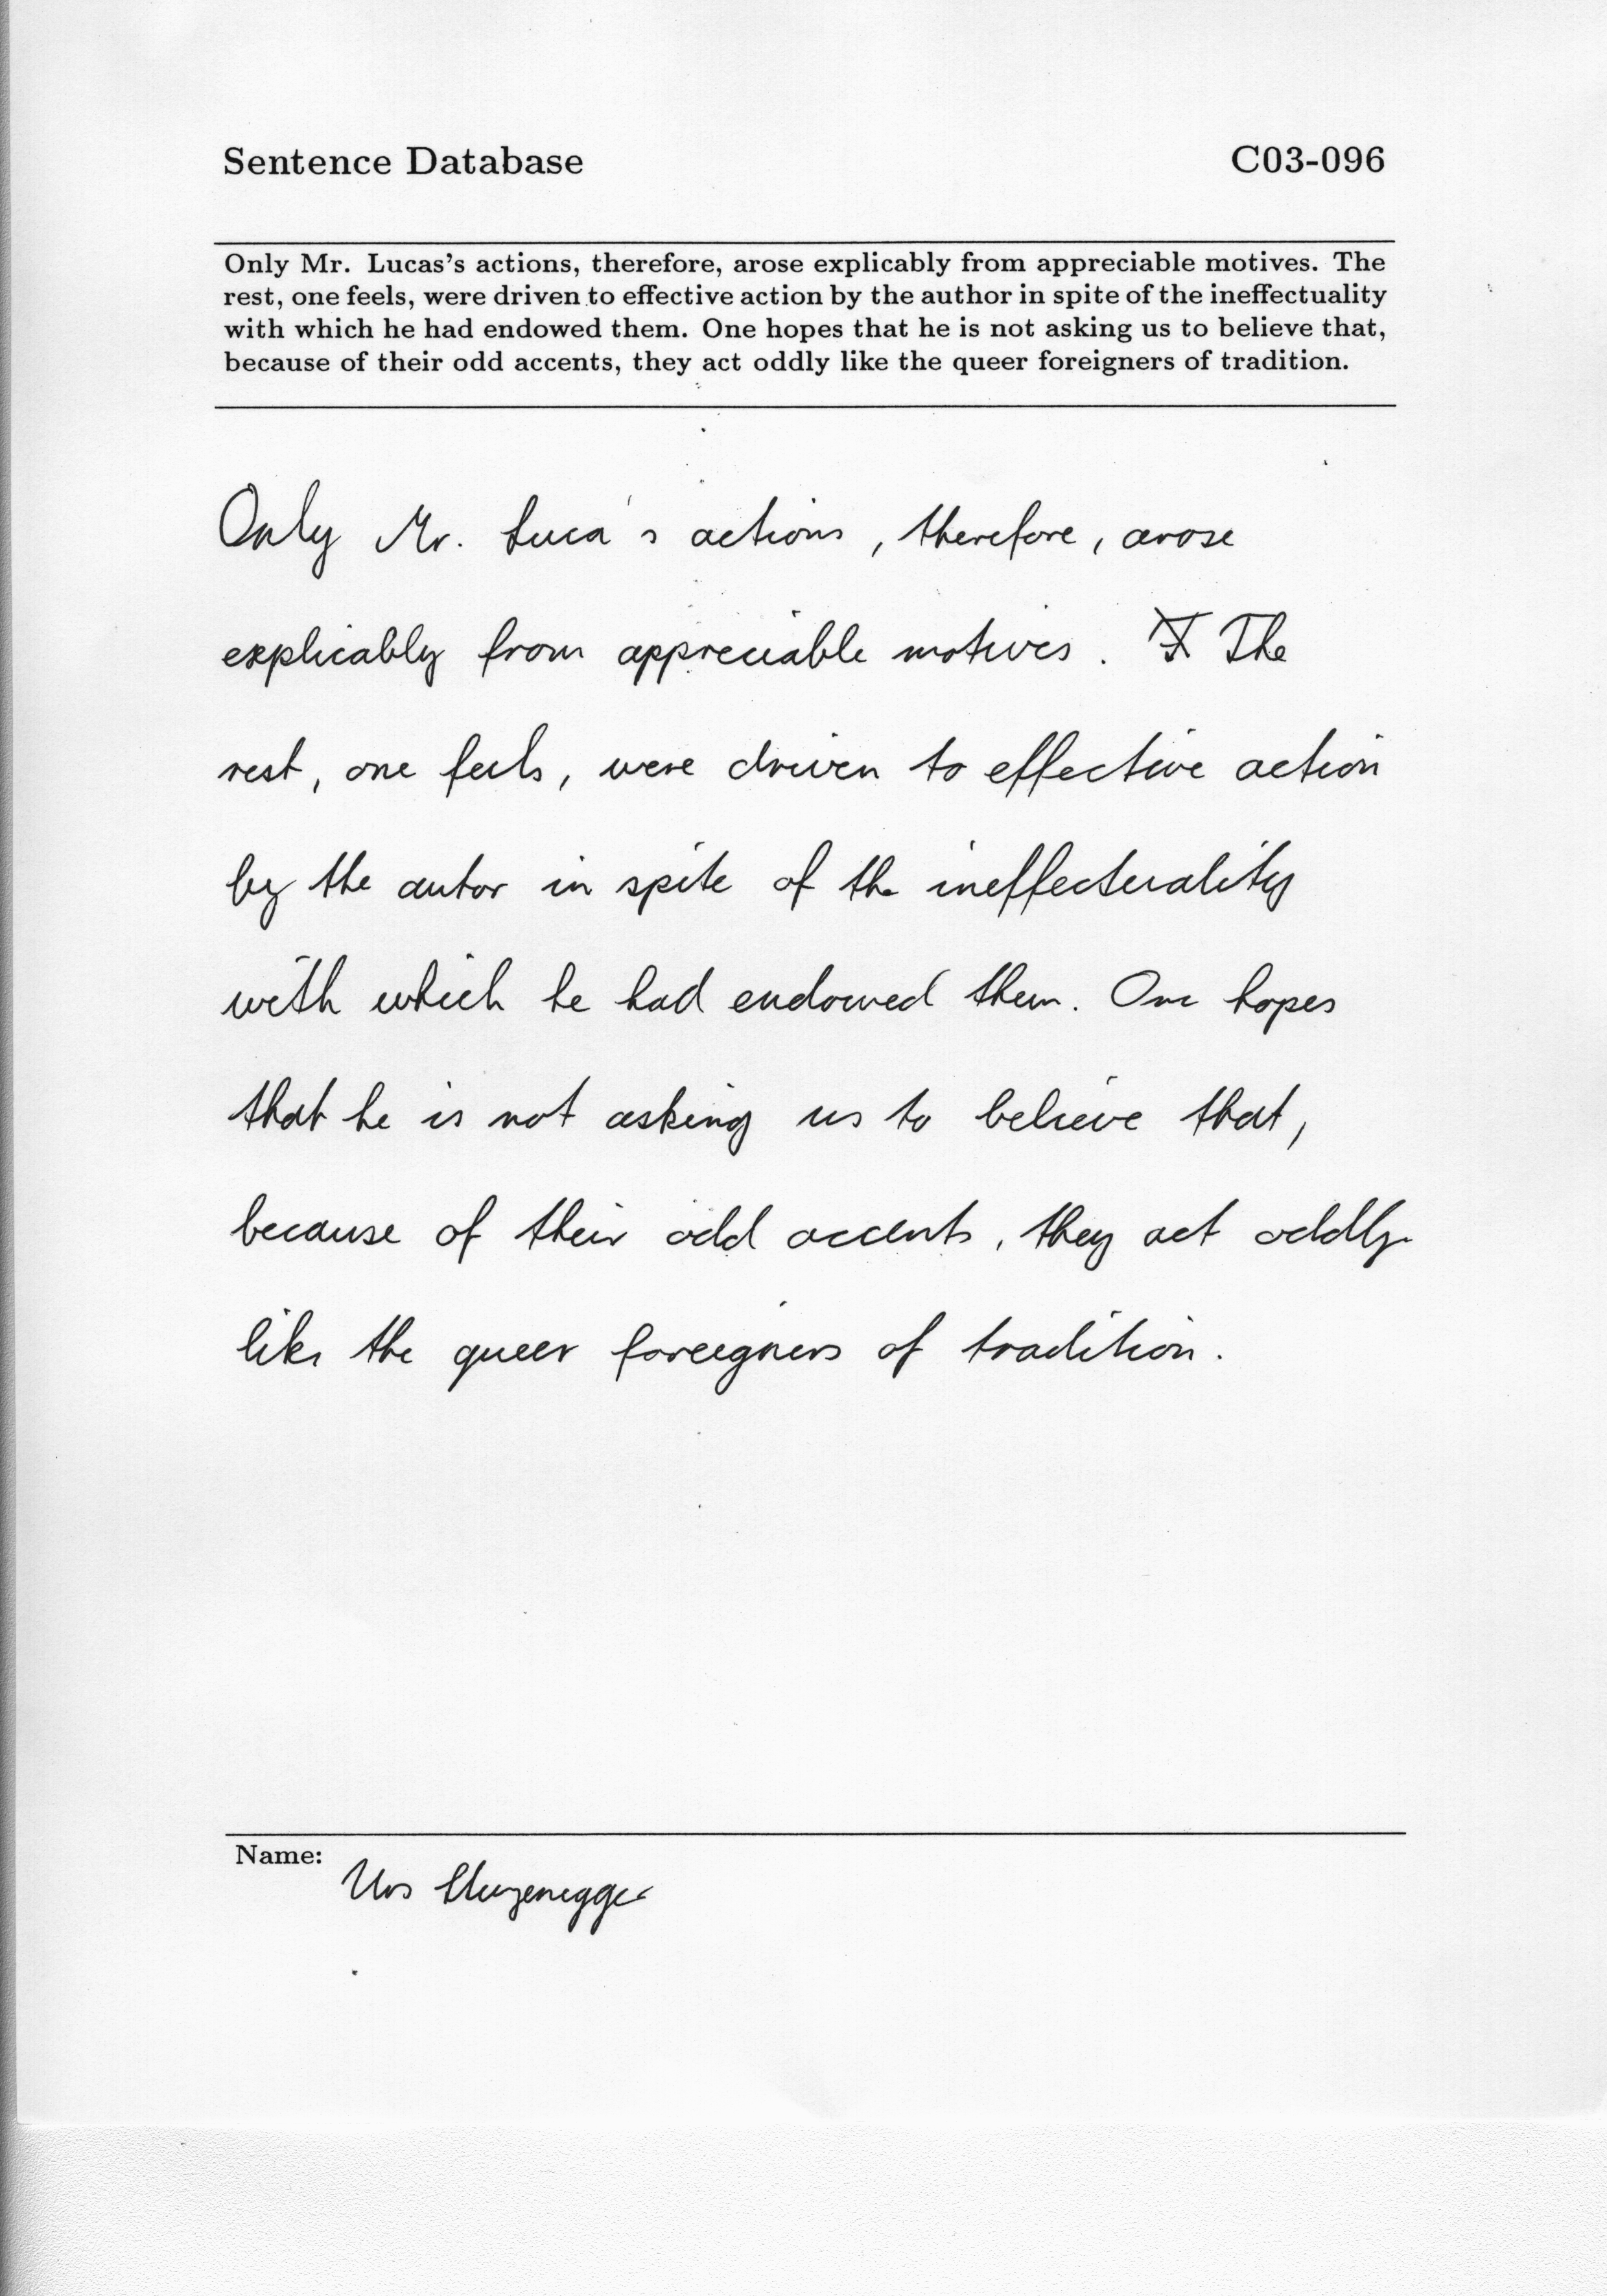 Sentence Database C03-096
Only Mr. Lucas's actions, therefore, arose explicably from appreciable motives. The
rest, one feels, were driven to effective action by the author in spite of the ineffectuality
with which he had endowed them. One hopes that he is not asking us to believe that,
because of their odd accents, they act oddly like the queer foreigners of tradition.
Only Mr. Luca's actions, therefore, arose
explicably from appreciable motives. The
rest, one feels, were driven to effective action
by the autor in spite of the ineffectuality
with which he had endowed them. One hopes
that he is not asking us to believe that,
because of their odd accents, they act oddly
like the queer foreigners of tradition.
Name:
Urs